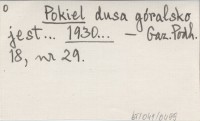 o
Pokiel dusa góralsko
jest... 1930... — Gaz. Podh.
18, nr 29.